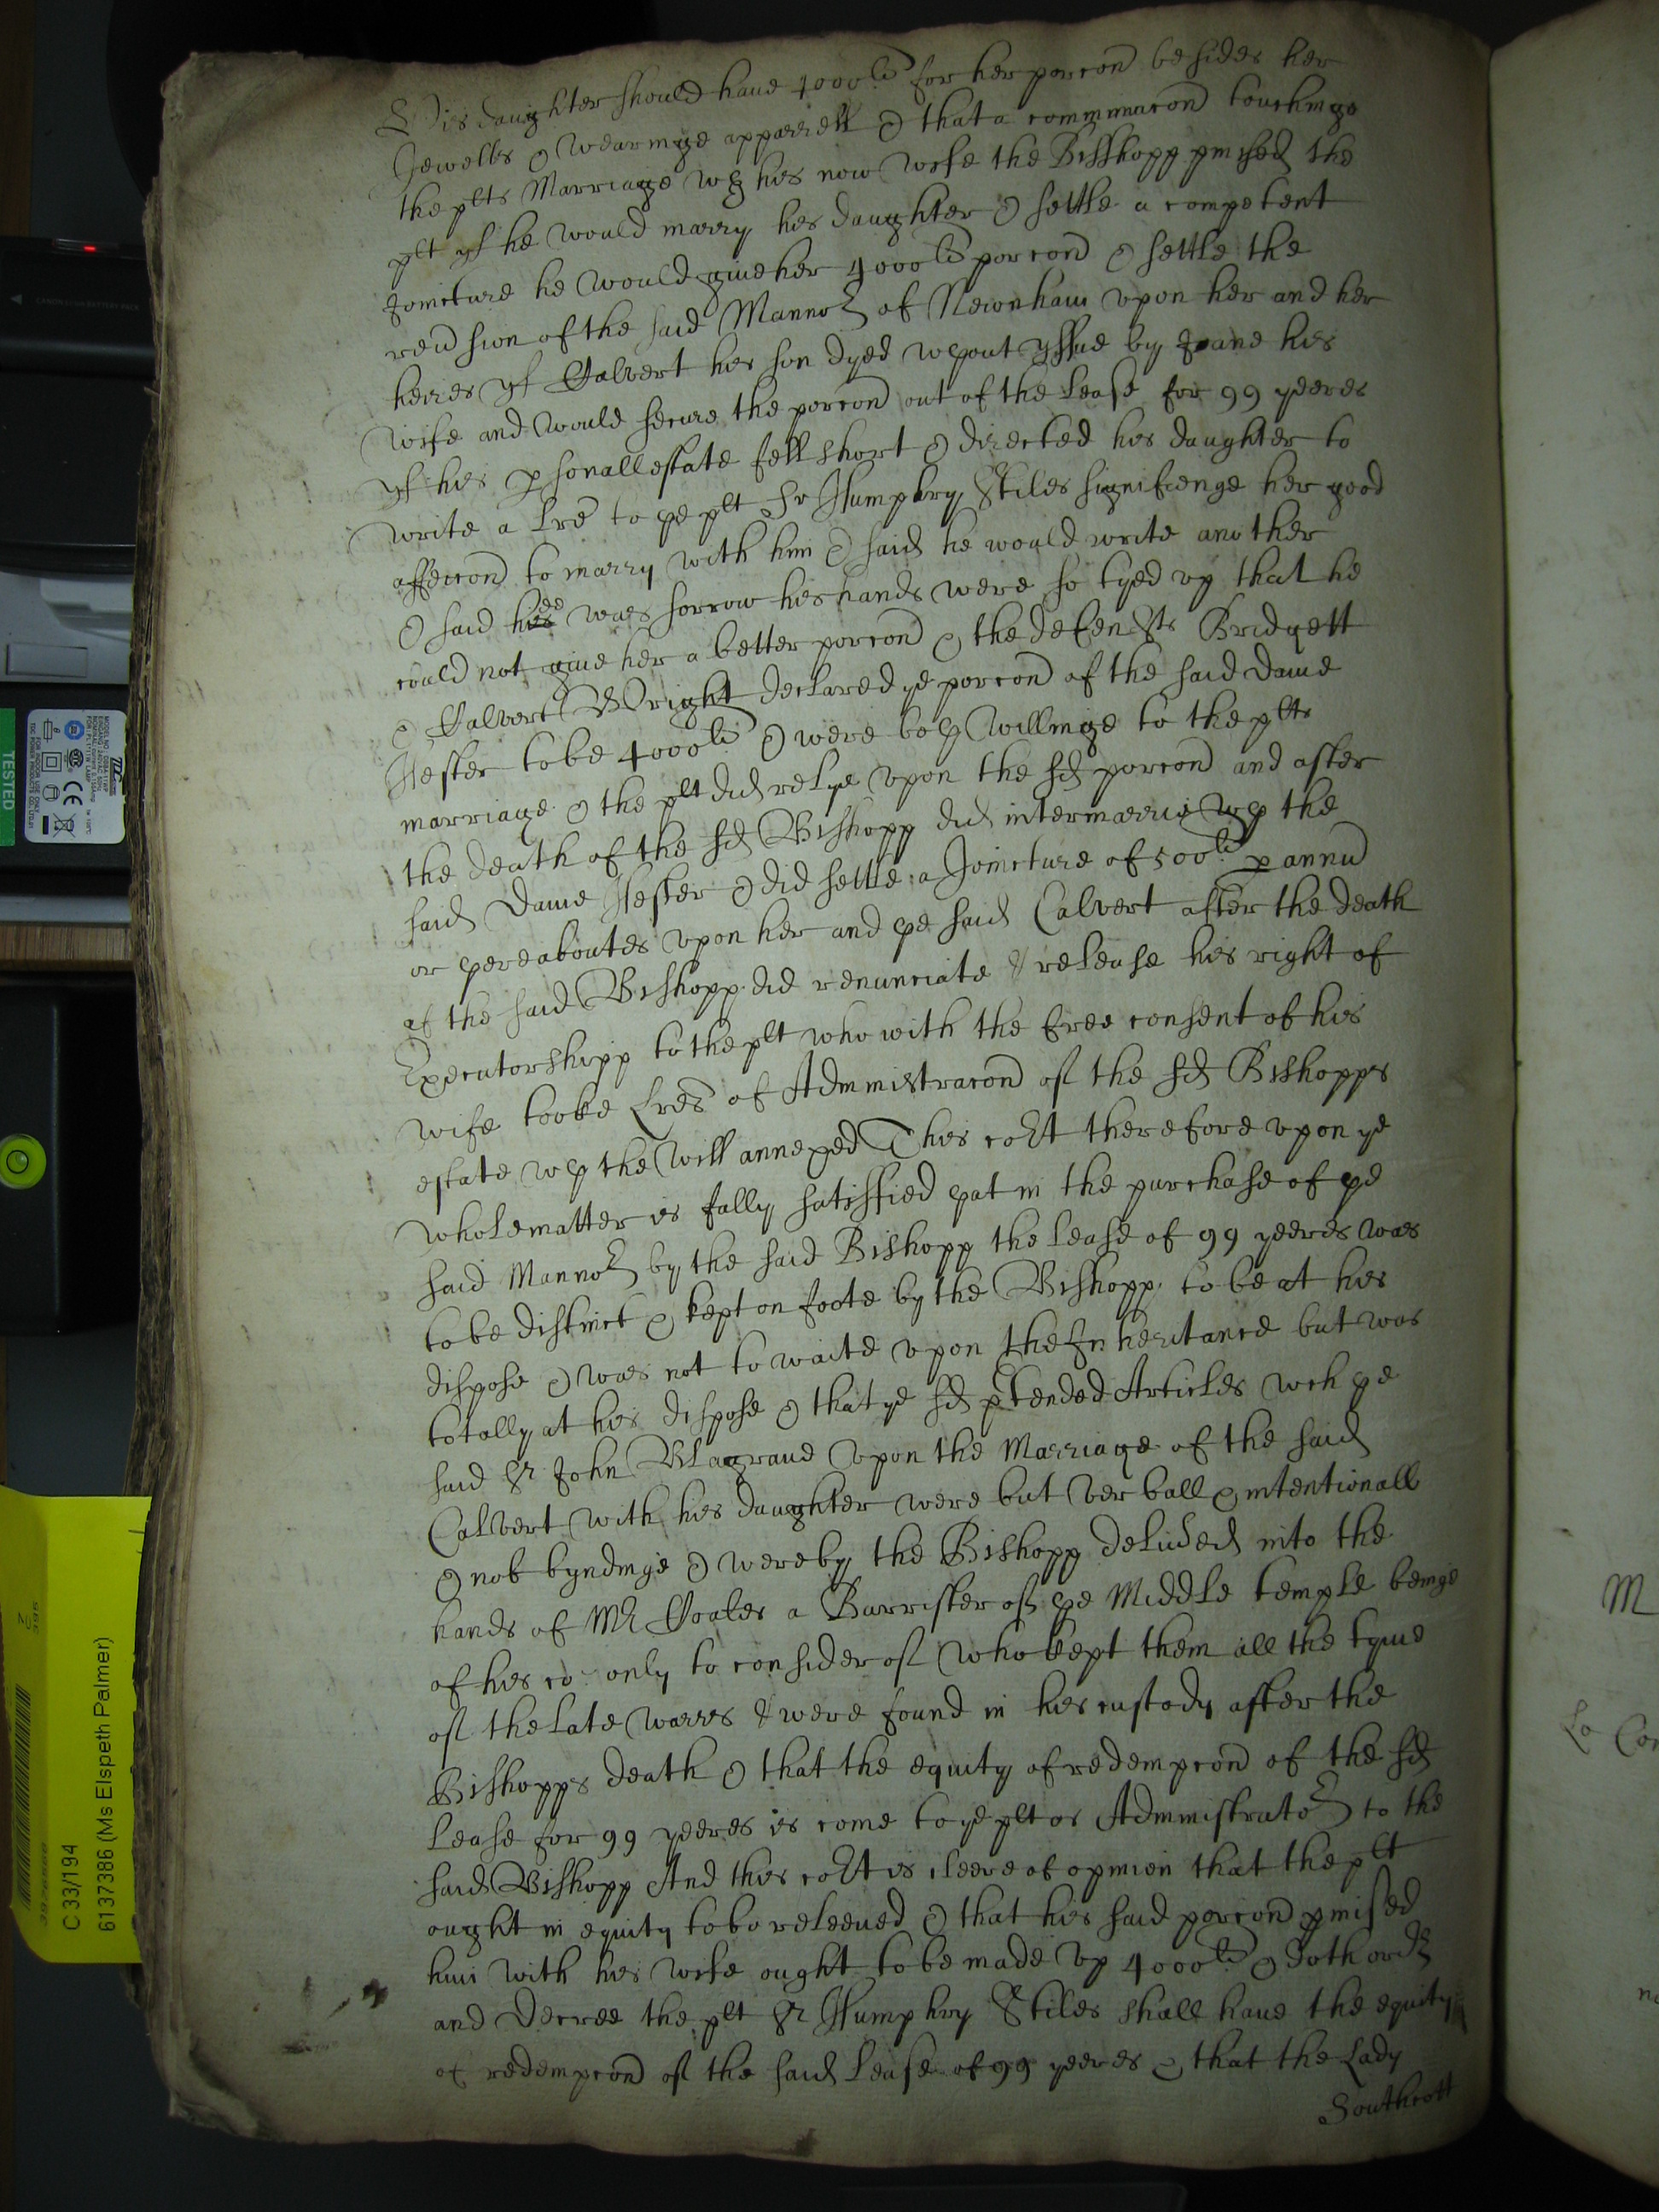 His daughter should haue 4000li for her porcon besides her
Jewells & wearinge apparrell & that a comunicacon touchinge
the plts Marriage wth his now wife the Bisshopp pmised the
plt yf he would marry his daughter & settle a competent
Joincture he would giue her 4000li porcon & settle the
reusion of the said Mannor of Newnham vpon her and her
heires yf Calvert his son dyed wthout yssue by Joane his
wife and would secure the porcon out of the lease for 99 yeeres
yf his psonall estate fell short & directed his daughter to
write a lre to ye plt Sr Humphry Stiles signifienge her good
affeccon to marry with him & said he would write another
& said hee was sorrow his hands were so tyed vp that he
could not giue her a better porcon & the defendts Bridgett
& Calvert Wright declared ye porcon of the said Dame
Hester to be 4000li & were both willinge to the plts
marriage & the plt did relye vpon the sd porcon and after
the death of the sd Bishopp did intermarrie wth the
said Dame Hester & did settle a Joincture of 500li p annu
or thereaboutes vpon her and the said Calvert after the death
of the said Bishopp did renunciate & release his right of
Executorshipp to the plt who with the free consent of his
wife tooke lres of Administracon of the sd Bishopps
estate wth the will annexed This cort therefore vpon ye
whole matter is fully satisfied that in the purchase of the
said Mannor by the said Bishopp the lease of 99 yeeres was
to be distinct & kept on foote by the Bishopp to be at his
dispose & was not to waite vpon the Inheritance but was
totally at his dispose & that ye sd ptended Articles wch the
said Sr John Blagraue vpon the Marriage of the said
Calvert with his daughter were but verball & intentionall
& not byndinge & were by the Bishopp deliued into the
hands of Mr Coales a Barrister of the Middle temple beinge
of his co: only to consider of who kept them all the tyme
of the late warres & were found in his custody after the
Bishopps death & that the equity of redempcon of the sd
lease for 99 yeeres is come to ye plt as Administrator to the
said Bishopp And this cort is cleere of opinion that the plt
ought in equity to be releeued & that his said porcon pmised
him with his wife ought to be made vp 4000li & doth order
and decree the plt Sr Humphry Stiles shall haue the equity
of redempcon of the said lease of 99 yeeres & that the Lady
Southcott
C 33/194
6137386 (Ms Elspeth Palmer)
TESTED
M